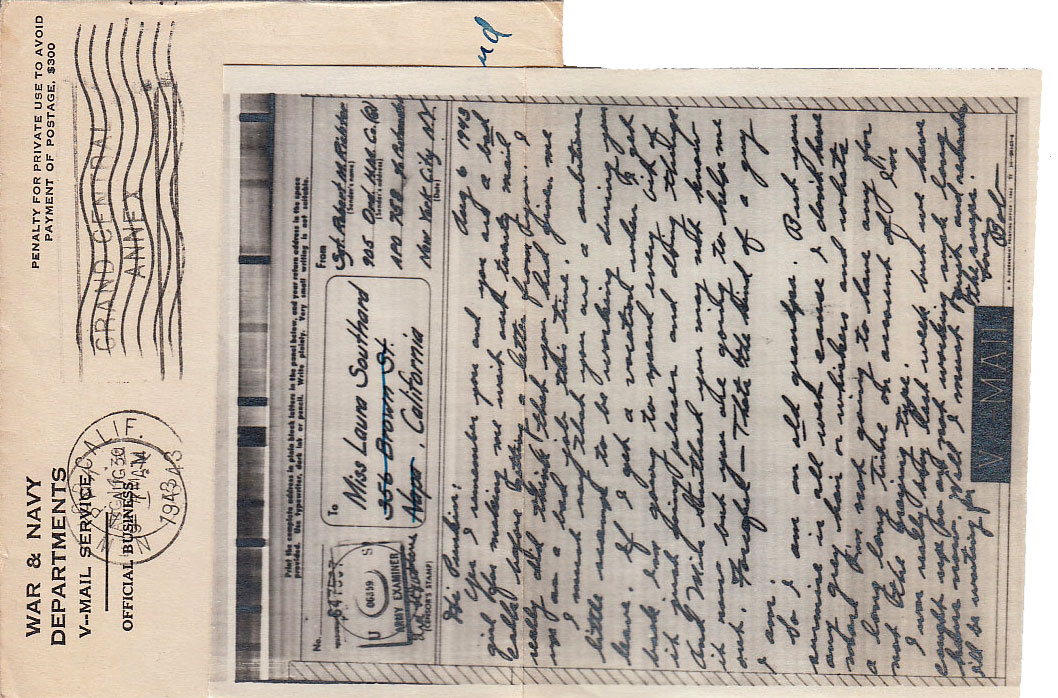 WAR & NAVY
DEPARTMENTS
V--MAIL SERVICE
OFFICIAL BUSINESS
PENALTY FOR PRIVATE USE TO AVOID
PAYMENT OF POSTAGE, $300
GRAND CENTRAL
ANNEX
CALIF.
AUG 30
AM
1943
Print the complete address in plain block letters in the panel below, and your return address in the space
provided. Use typewriter, dark ink or pencil. Write plainly. Very small writing is not suitable.
No.
647587
U S
06359
ARMY EXAMINER
(CENSOR'S STAMP)
To
Miss Laura Southard
356 Brown St.
Napa, California
From
Sgt. Robert M.
(Sender's name)
925 Ord. H.M. Co. (Q)
(Sender's address)
APO 758 % Postmaster
New York City N.Y.
Aug 6 1943
Hi Punkin:
Yes I remember you and you are a bad
girl for making me wait such twenty mail
calls before getting a letter from you. I
really did think that you had given me
up as a bad job this time.
I must say that you are a ambitious
little wench to be working during you
leave. If I get a vacation when I get
back I am going to spend every bit of
it just fing pleasure and doing things
And Miss Southard you may not know
it now but you are going to help me
out. Forceful — That's the kind of a guy
I am.
So I am an all grandpa. But you
surmise is all wet cause I don't have
any grey hair or whiskers and whats
more I'm not going to have any for
a long long time on account of I'm
not the worrying type.
I was really busy last week but we have
caught up so am not working such long
hours now. Well I must quit and
Ill be waiting for the snaps.
Love
Bob
V-MAIL